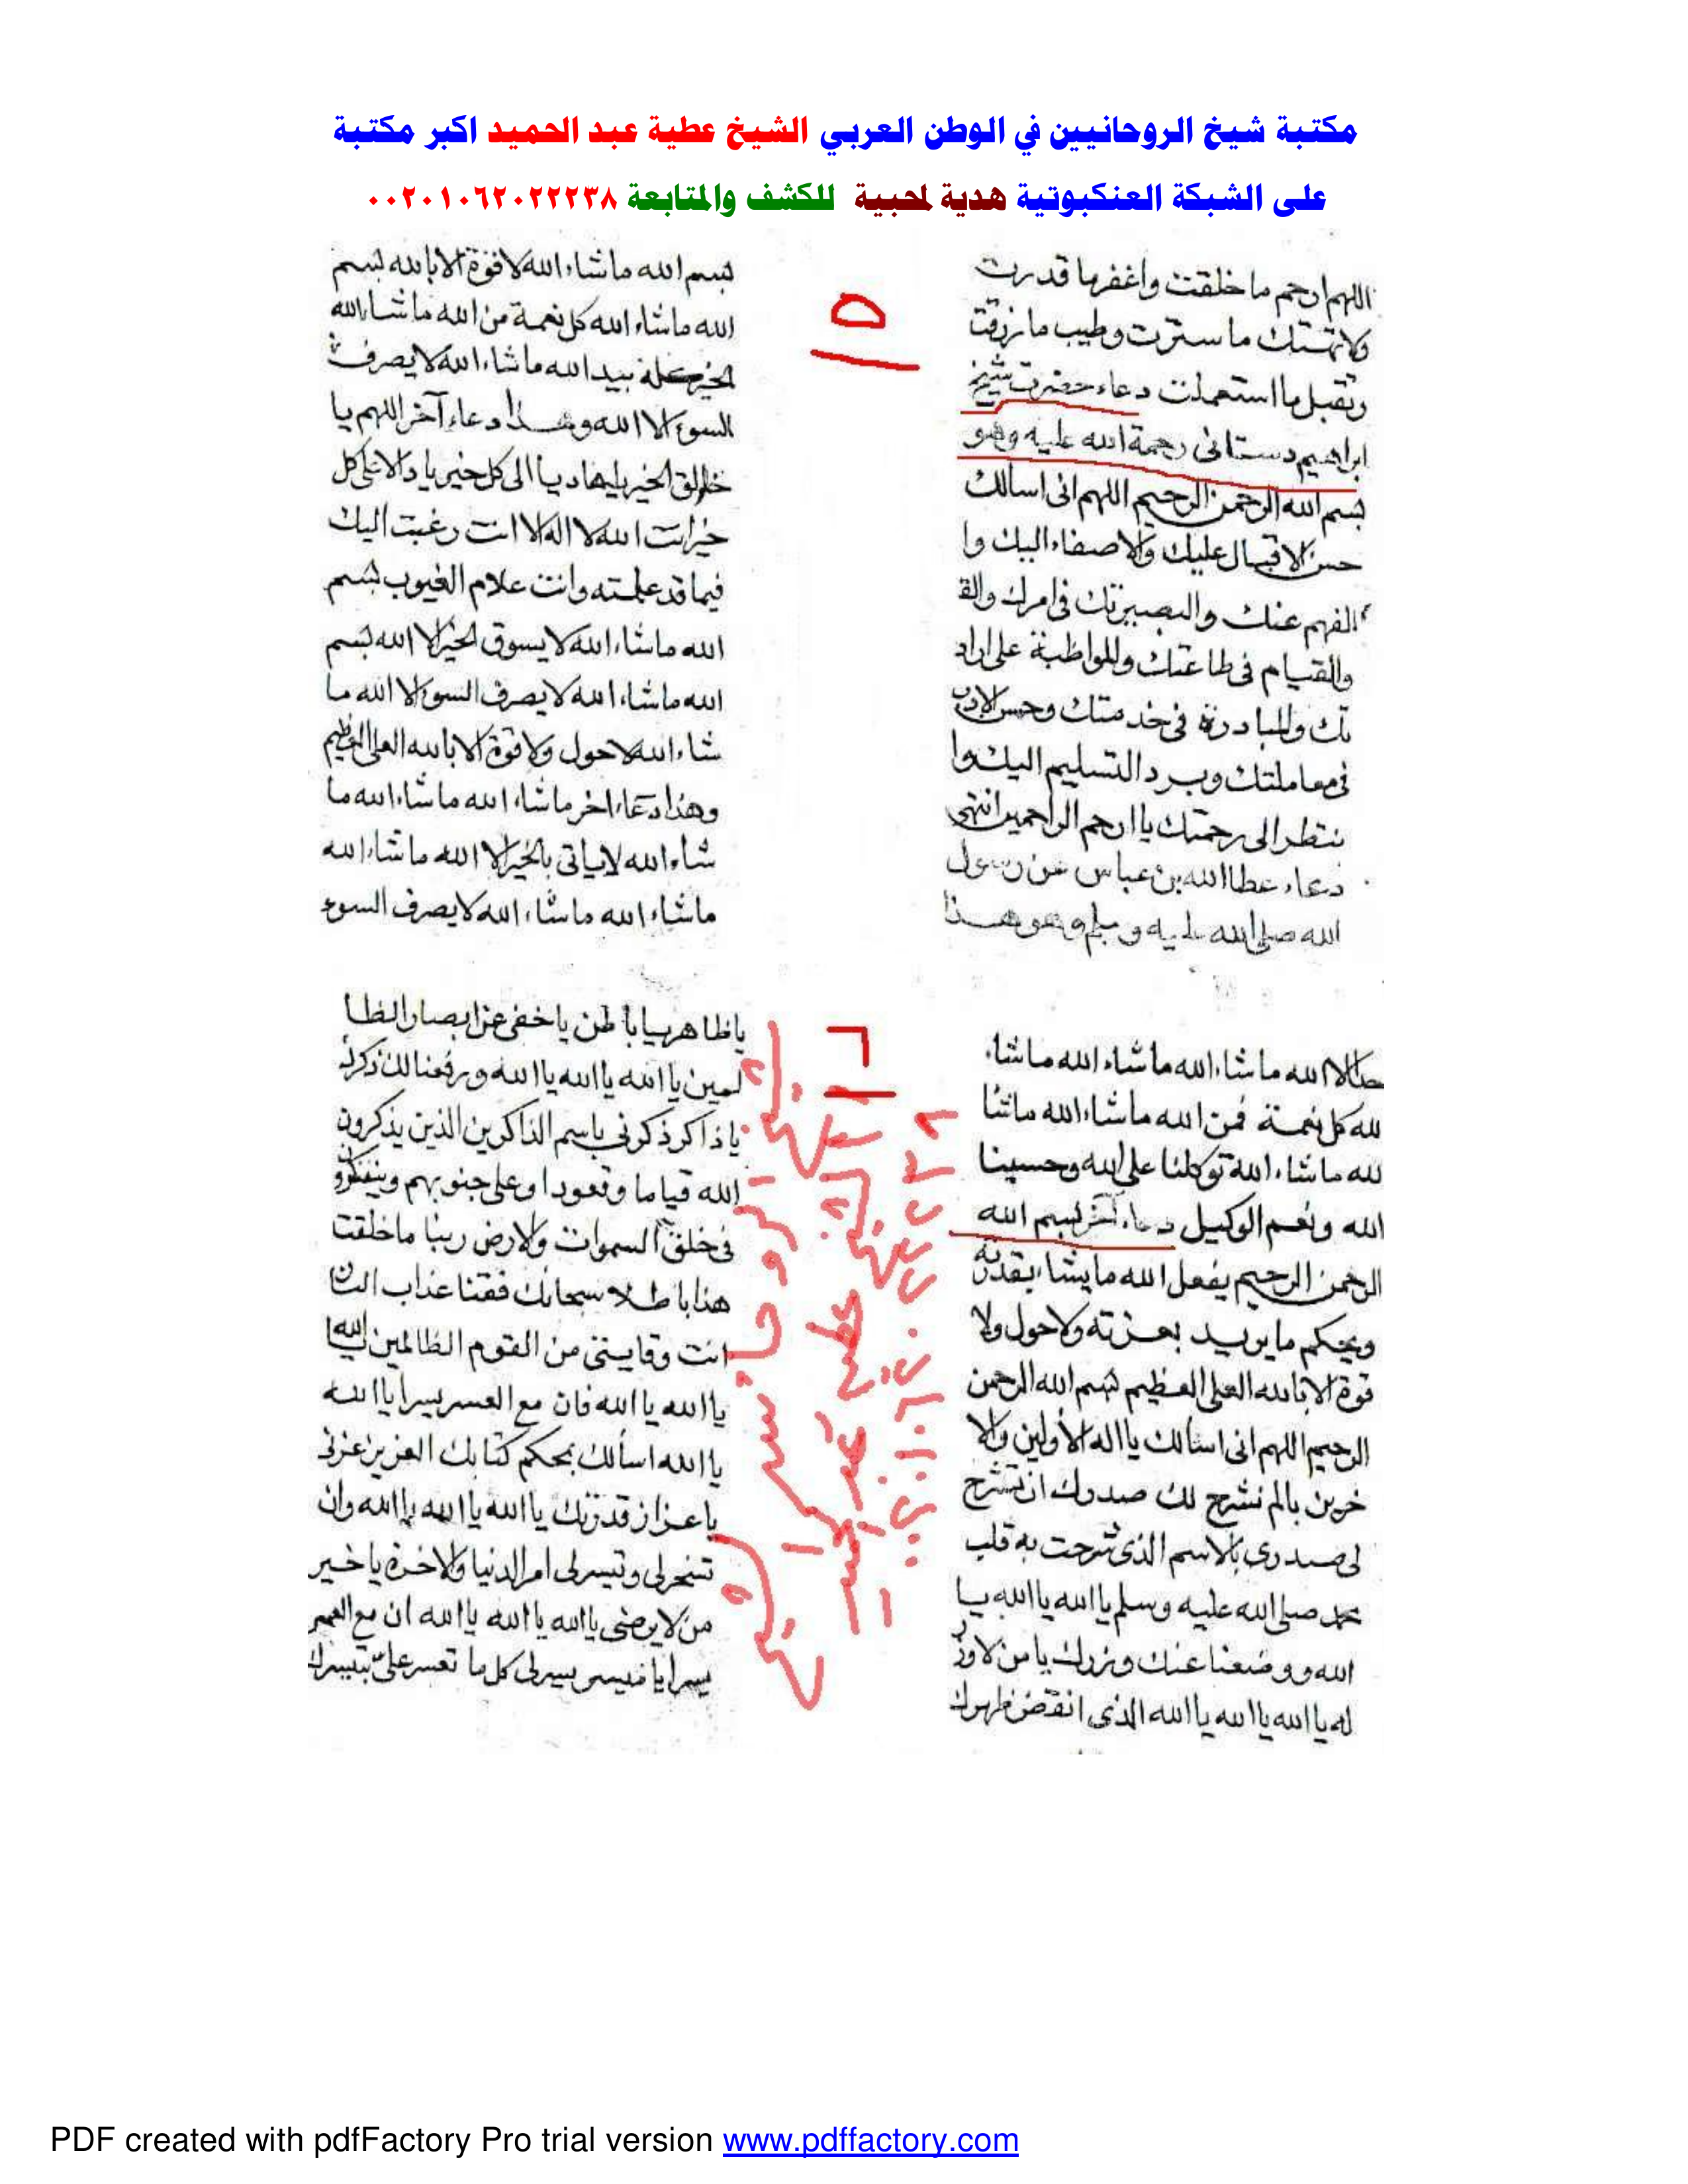 مكتبة شيخ الروحانيين في الوطن العربي الشيخ عطية عبد الحميد اكبر مكتبة
على الشبكة العنكبوتية هدية لمحبية للكشف والمتابعة ٠٠٢٠١٠٦٢٠٢٢٢٣٨
١٥
اللهم ارحم ما خلقت واغفر ما قدرت
ولا تهتك ما سترت وطيب ما رزقت
وتقبل ما استعملت دعاء حضرت شيخ
ابراهيم دستانى رحمة الله عليه وهو
بسم الله الرحمن الرحيم اللهم انى اسالك
حسن الاقبال عليك والاصغاء اليك وا
لفهم عنك والبصيرتك فى امرك والق
والقيام فى طاعتك والمواظبة على اراد
تك والمبادرة فى خدمتك وحسن الادب
فى معاملتك وبرد التسليم اليك وا
ننظر الى رحمتك يا ارحم الراحمين انتهى
دعاء عطا الله بن عباس عن رسول
الله صلى الله عليه وسلم وهو هذا
بسم الله ما شاء الله لا قوة الا بالله بسم
الله ما شاء الله كل نعمة من الله ما شاء الله
الخير كله بيد الله ما شاء الله لا يصرف
السوء الا الله وهذا دعاء آخر اللهم يا
خالق الخير يا هاديا الى كل خير يا دالا على كل
خير انت الله لا اله الا انت رغبت اليك
فيما قد علمته وانت علام الغيوب بسم
الله ما شاء الله لا يسوق الخير الا الله بسم
الله ما شاء الله لا يصرف السوء الا الله ما
شاء الله لا حول ولا قوة الا بالله العلى العظيم
وهذا دعاء اخر ما شاء الله ما شاء الله ما
شاء الله لا ياتى بالخير الا الله ما شاء الله
ما شاء الله ما شاء الله لا يصرف السوء
١٦
الا الله ما شاء الله ما شاء الله ما شاء
لله كل نعمة فمن الله ما شاء الله ما شا
لله ما شاء الله توكلنا على الله وحسبنا
الله ونعم الوكيل دعاء آخر بسم الله
الرحمن الرحيم يفعل الله ما يشاء بقدرته
ويحكم ما يريد بعزته ولا حول ولا
قوة الا بالله العلى العظيم بسم الله الرحمن
الرحيم اللهم انى اسالك يا اله الأولين والا
خرين بالم نشرح لك صدرك ان تشرح
لى صدرى بالاسم الذى شرحت به قلب
محمد صلى الله عليه وسلم يا الله يا الله يا
الله ووضعنا عنك وزرك يا من لا وزر
له يا الله يا الله يا الله الذى انقض ظهرك
يا ظاهر يا باطن يا خفى عن ابصار الظا
لمين يا الله يا الله يا الله ورفعنا لك ذكرك
يا ذاكر ذكرنى باسم الذاكرين الذين يذكرون
الله قياما وقعودا وعلى جنوبهم ويتفكرون
فى خلق السموات والارض ربنا ما خلقت
هذا باطلا سبحانك فقنا عذاب النار
انت وقايتى من القوم الظالمين يا الله
يا الله يا الله فان مع العسر يسرا يا الله
يا الله اسألك بحكم كتابك العزيز عزنى
يا عزاز قدرتك يا الله يا الله يا الله وان
تسخرلى وتيسرلى امر الدنيا والاخرة يا خير
من لا يرضى يا الله يا الله يا الله ان مع العسر
يسرا يا ميسر يسرلى كل ما تعسر على بتيسيرك
شيخ الروحانيين
الشيخ عطية عبد الحميد
٠٠٢٠١٠٦٢٠٢٢٢٣٨
PDF created with pdfFactory Pro trial version www.pdffactory.com